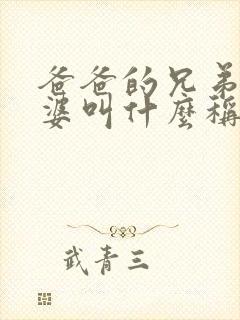 爸爸的兄弟
婆叫什麼稱
武青三